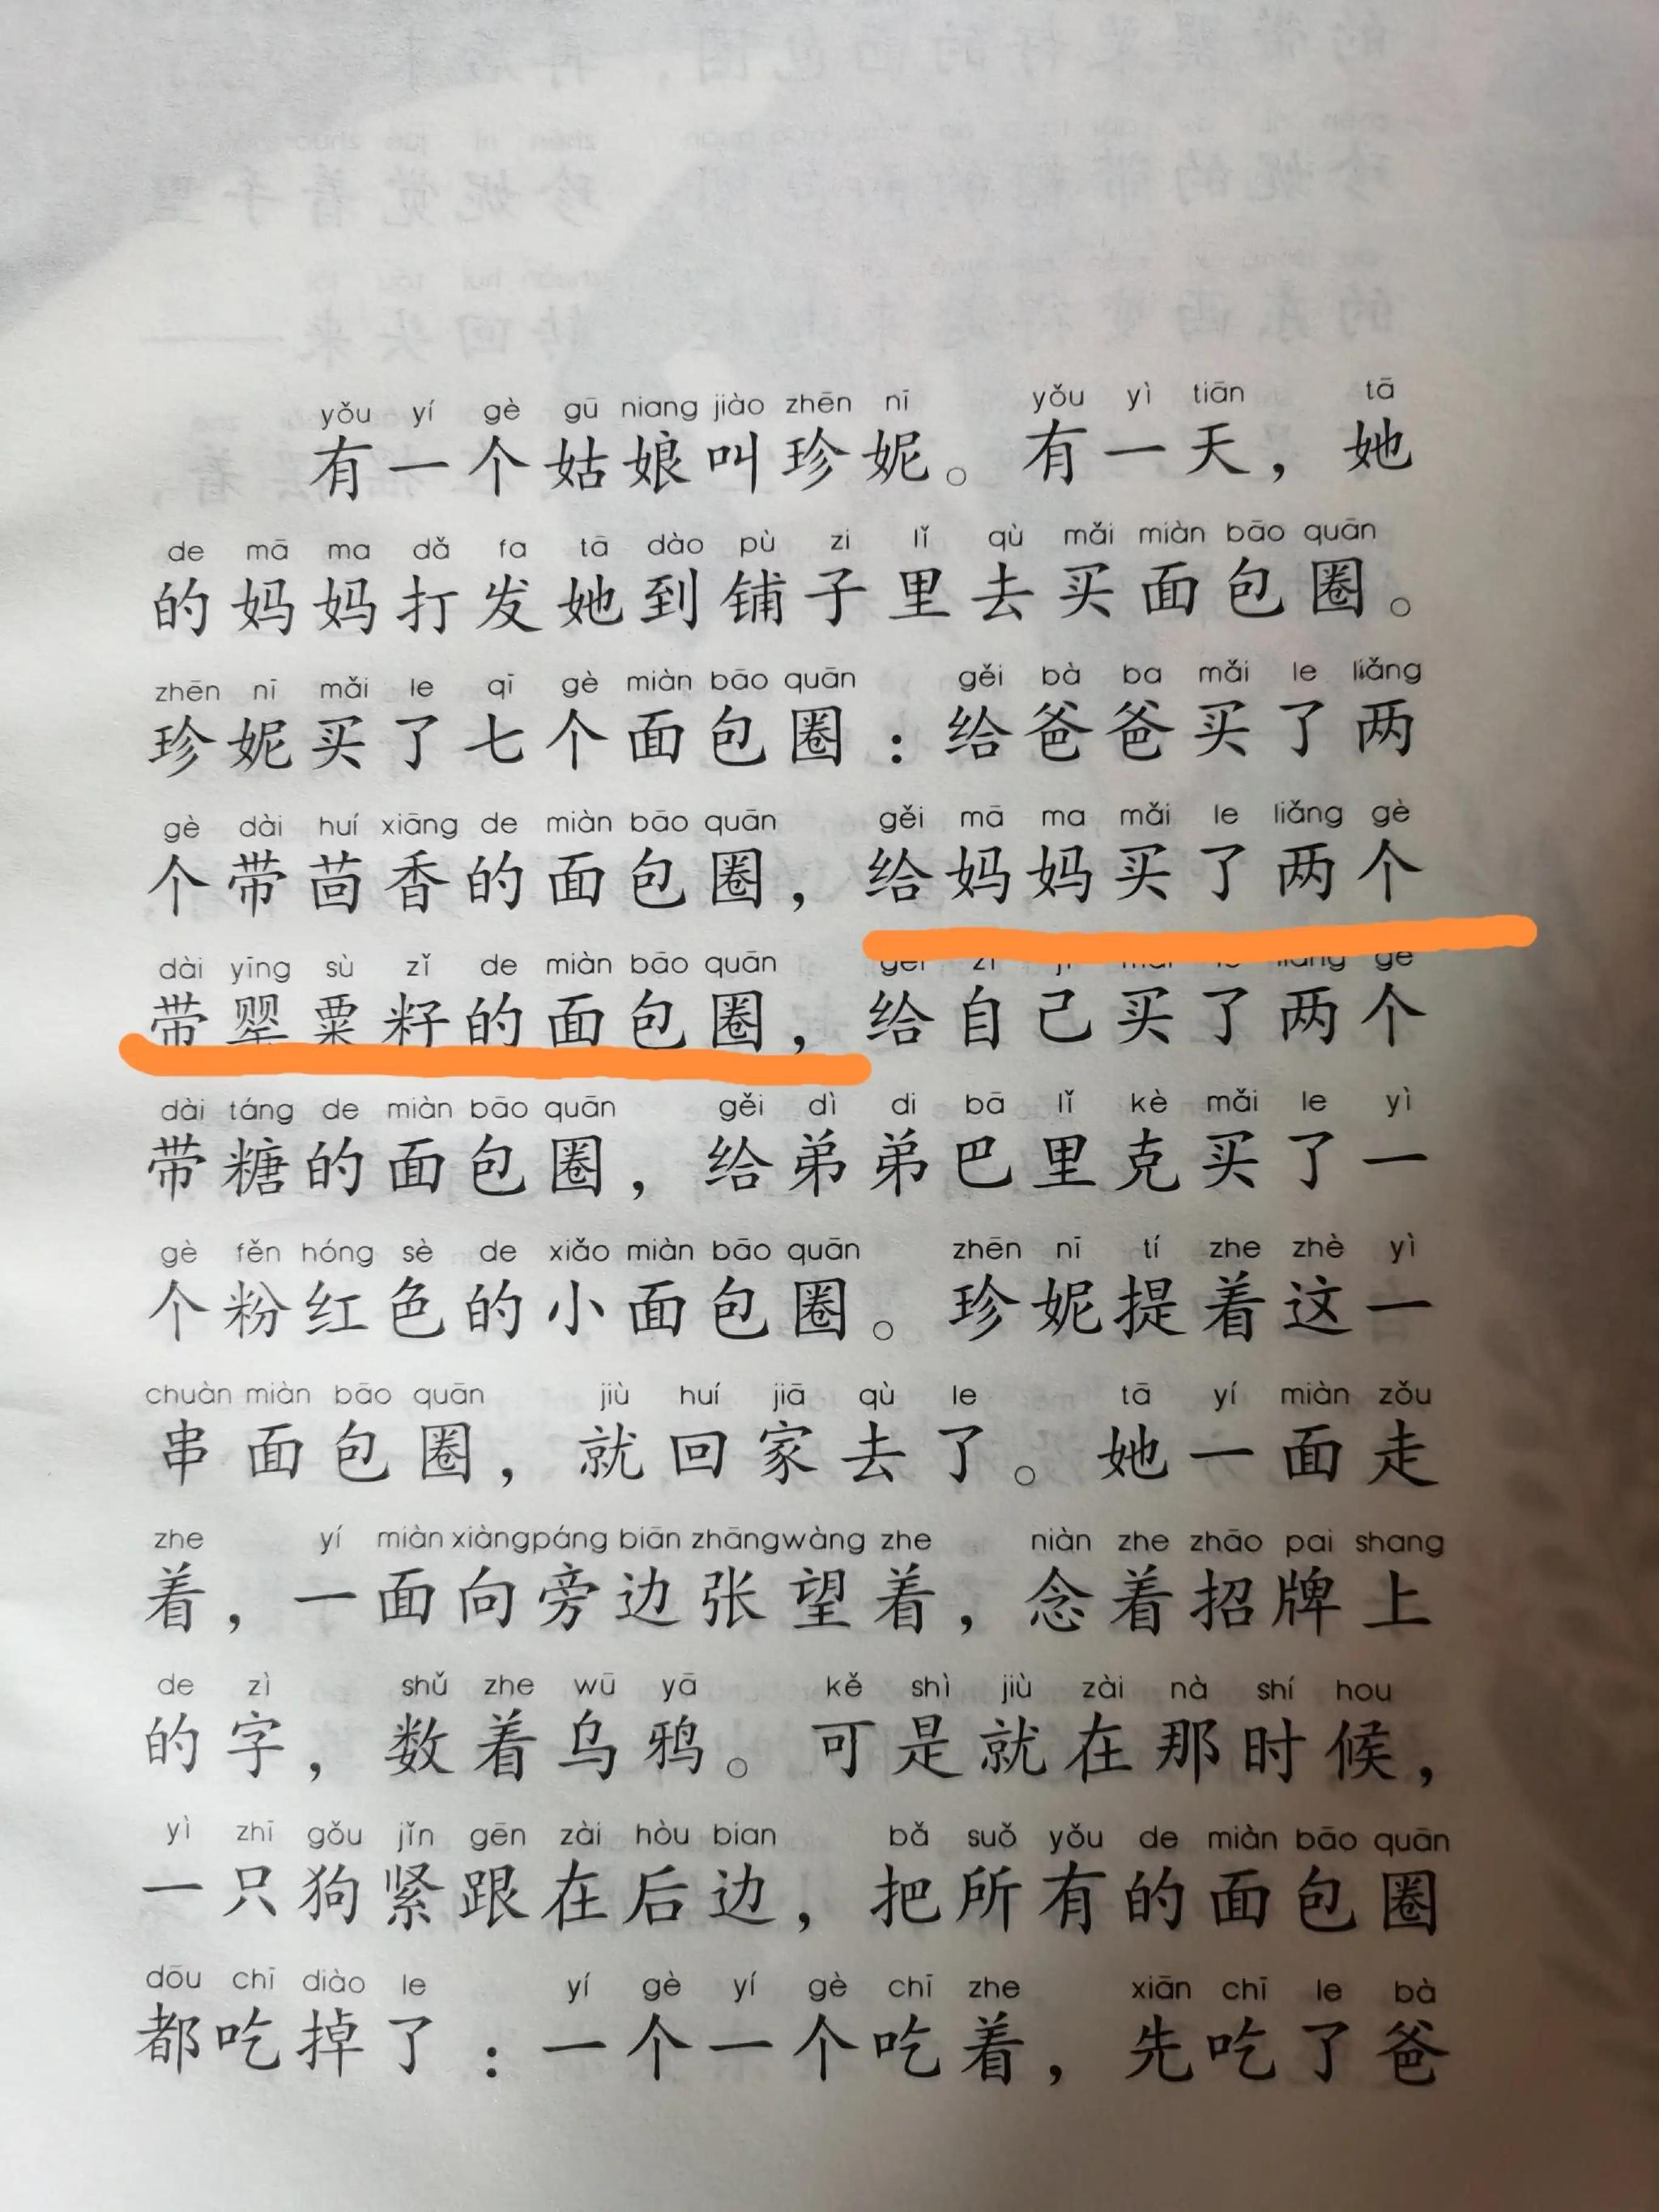 yǒu yí gè gū niang jiào zhēn nī yǒu yì tiān tā
有一个姑娘叫珍妮。有一天，她
de mā ma dǎ fa tā dào pù zi lǐ qù mǎi miàn bāo quān
的妈妈打发她到铺子里去买面包圈。
zhēn nī mǎi le qī gè miàn bāo quān gěi bà ba mǎi le liǎng
珍妮买了七个面包圈：给爸爸买了两
gè dài huí xiāng de miàn bāo quān gěi mā ma mǎi le liǎng gè
个带茴香的面包圈，给妈妈买了两个
dài yīng sù zǐ de miàn bāo quān
带罂粟籽的面包圈，给自己买了两个
dài táng de miàn bāo quān gěi dì di bā lǐ kè mǎi le yì
带糖的面包圈，给弟弟巴里克买了一
gè fěn hóng sè de xiǎo miàn bāo quān zhēn nī tí zhe zhè yì
个粉红色的小面包圈。珍妮提着这一
chuàn miàn bāo quān jiù huí jiā qù le tā yí miàn zǒu
串面包圈，就回家去了。她一面走
zhe yí miàn xiàng páng biān zhāng wàng zhe niàn zhe zhāo pai shang
着，一面向旁边张望着，念着招牌上
de zì shǔ zhe wū yā kě shì jiù zài nà shí hou
的字，数着乌鸦。可是就在那时候，
yì zhī gǒu jǐn gēn zài hòu bian bǎ suǒ yǒu de miàn bāo quān
一只狗紧跟在后边，把所有的面包圈
dōu chī diào le yí gè yí gè chī zhe xiān chī le bà
都吃掉了：一个一个吃着，先吃了爸